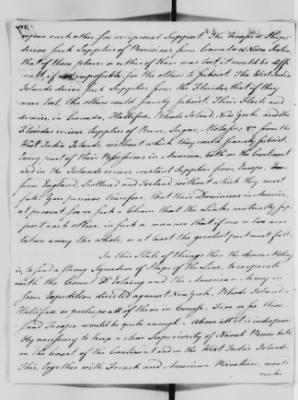 upon each other for reciprocal Support. The Troops & Ships
derive such Supplies of Provisions from Canada & Nova Scotia
that if these places or either of them was lost, it would be diffi
cult, if not impossible for the other to subsist. The West India
Islands derive such Supplies from the Floridas that if they
were lost the others could scarcely subsist. Their Fleets and
Armies, in Canada, Hallifax, Rhode Island New york and the
Floridas receive Supplies of Rum, Sugar, Molasses, &c from the
West India Islands, without which they could scarcely subsist.
Every part of their Possessions in America, both on the Continent
and in the Islands receives constant Supplies from Europe,
from England, Scotland and Ireland without which they must
fall. You perceive therefore, that their Dominions in America,
at present form such a Chain that the Links mutually sup
port each other, in such a manner that if one or two were
taken away the whole, or at least the greatest part must fall.
In this State of things then the obvious Policy
is, to send a strong Squadron of Ships of the Line, to co-operate
with the Count D'Estaing and the American Army in
some Expedition directed against New york, Rhode Island
Halifax or perhaps all of them in Course. Five or six thou
sand Troops would be quite enough. Above all it is indispensi
bly necessary to keep a clear Superiority of Naval Power both
on the Coast of the Continent and in the West India Islands.
This, together with French and American Privateers, would
make